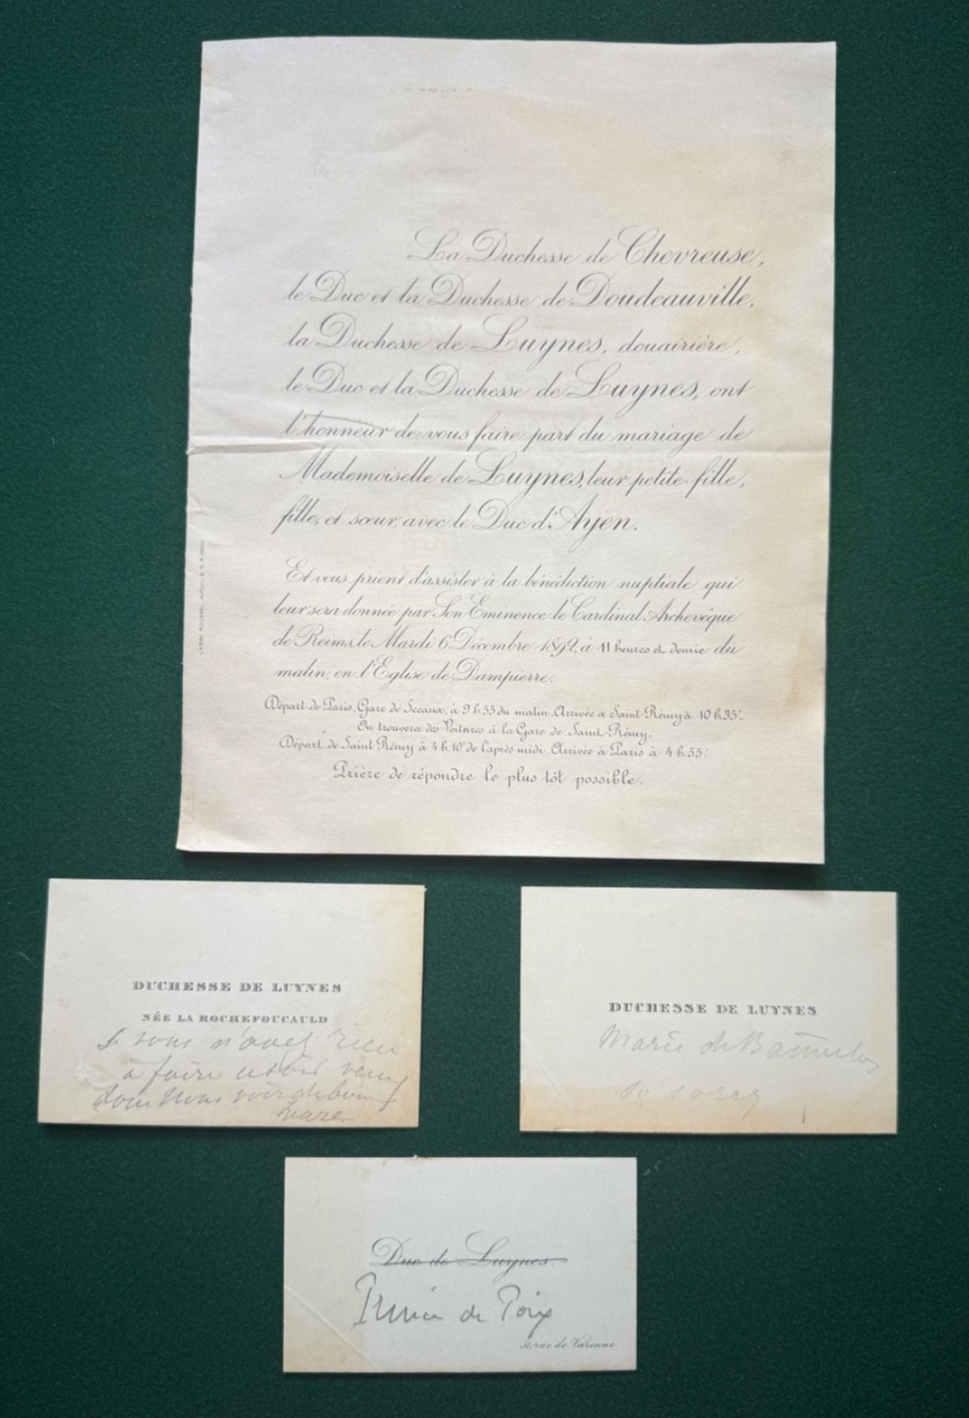 La Duchesse de Chevreuse,
le Duc et la Duchesse de Doudeauville,
la Duchesse de Luynes, douairière,
le Duc et la Duchesse de Luynes, ont
l'honneur de vous faire part du mariage de
Mademoiselle de Luynes, leur petite-fille,
fille, et sœur, avec le Duc d'Ayen.
Et vous prient d'assister à la bénédiction nuptiale qui
leur sera donnée par Son Eminence le Cardinal Archevêque
de Reims, le Mardi 6 Décembre 1892, à 11 heures et demie du
matin, en l'Eglise de Dampierre.
Départ de Paris, Gare de Sceaux, à 9 h. 55 du matin. Arrivée à Saint-Rémy à 10 h. 35'.
On trouvera des Voitures à la Gare de Saint-Rémy.
Départ de Saint-Rémy à 4 h. 10' de l'après midi. Arrivée à Paris à 4 h. 55'.
Prière de répondre le plus tôt possible.
DUCHESSE DE LUYNES
NÉE LA ROCHEFOUCAULD
vous n'avez rien
à faire
nous voir
DUCHESSE DE LUYNES
Marie de
Duc de Luynes.
Prince de Poix
rue de Varenne